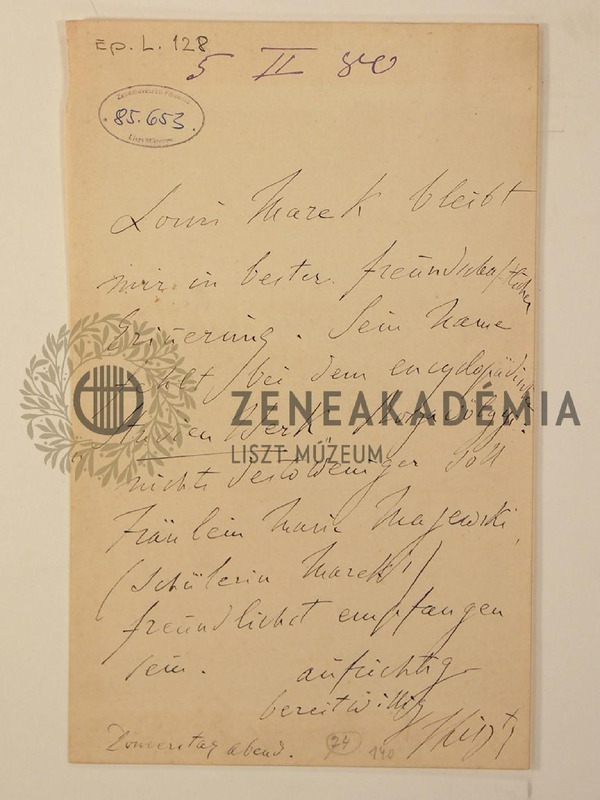 Ep. L. 128
5 II 80
85.653
Louis Marek bleibt
mir in bester freundschaftlichen
Erinnerung. Sein Name
fehlt bei dem encyclopädisch
ZENEAKADÉMIA
Werk
LISZT MÚZEUM
nichts destoweniger soll
Fräulein Marie Majewski,
(Schülerin Marek's)
freundlichst empfangen
sein. aufrichtig
bereitwillig
FLiszt
Donnerstag abend.
24
140